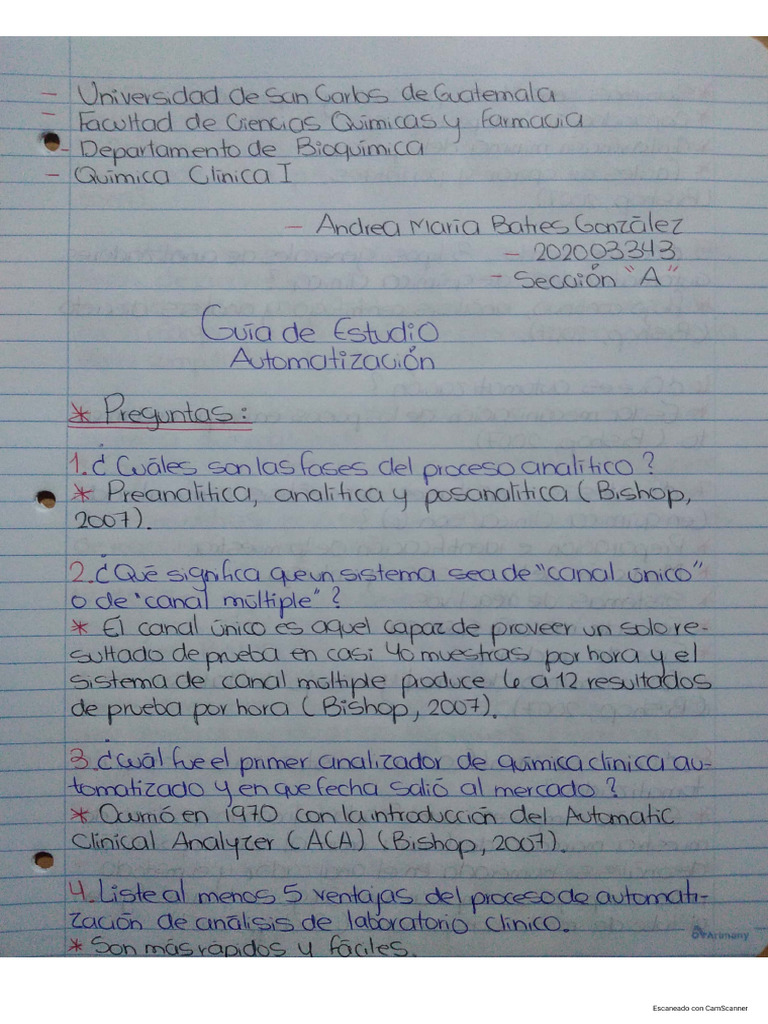 - Universidad de San Carlos de Guatemala
- Facultad de Ciencias Químicas y Farmacia
- Departamento de Bioquímica
- Química Clínica I
- Andrea María Batres González
- 202003343
- Sección "A"
Guía de Estudio
Automatización
* Preguntas:
1. ¿Cuáles son las fases del proceso analítico?
* Preanalítica, analítica y posanalítica (Bishop,
2007).
2. ¿Qué significa que un sistema sea de "canal único"
o de "canal múltiple"?
* El canal único es aquel capaz de proveer un solo re-
sultado de prueba en casi 40 muestras por hora y el
sistema de canal múltiple produce 6 a 12 resultados
de prueba por hora (Bishop, 2007).
3. ¿Cuál fue el primer analizador de química clínica au-
tomatizado y en que fecha salió al mercado?
* Ocurrió en 1970 con la introducción del Automatic
Clinical Analyzer (ACA) (Bishop, 2007).
4. Liste al menos 5 ventajas del proceso de automati-
zación de análisis de laboratorio clínico.
* Son más rápidos y fáciles.
Arimany
Escaneado con CamScanner